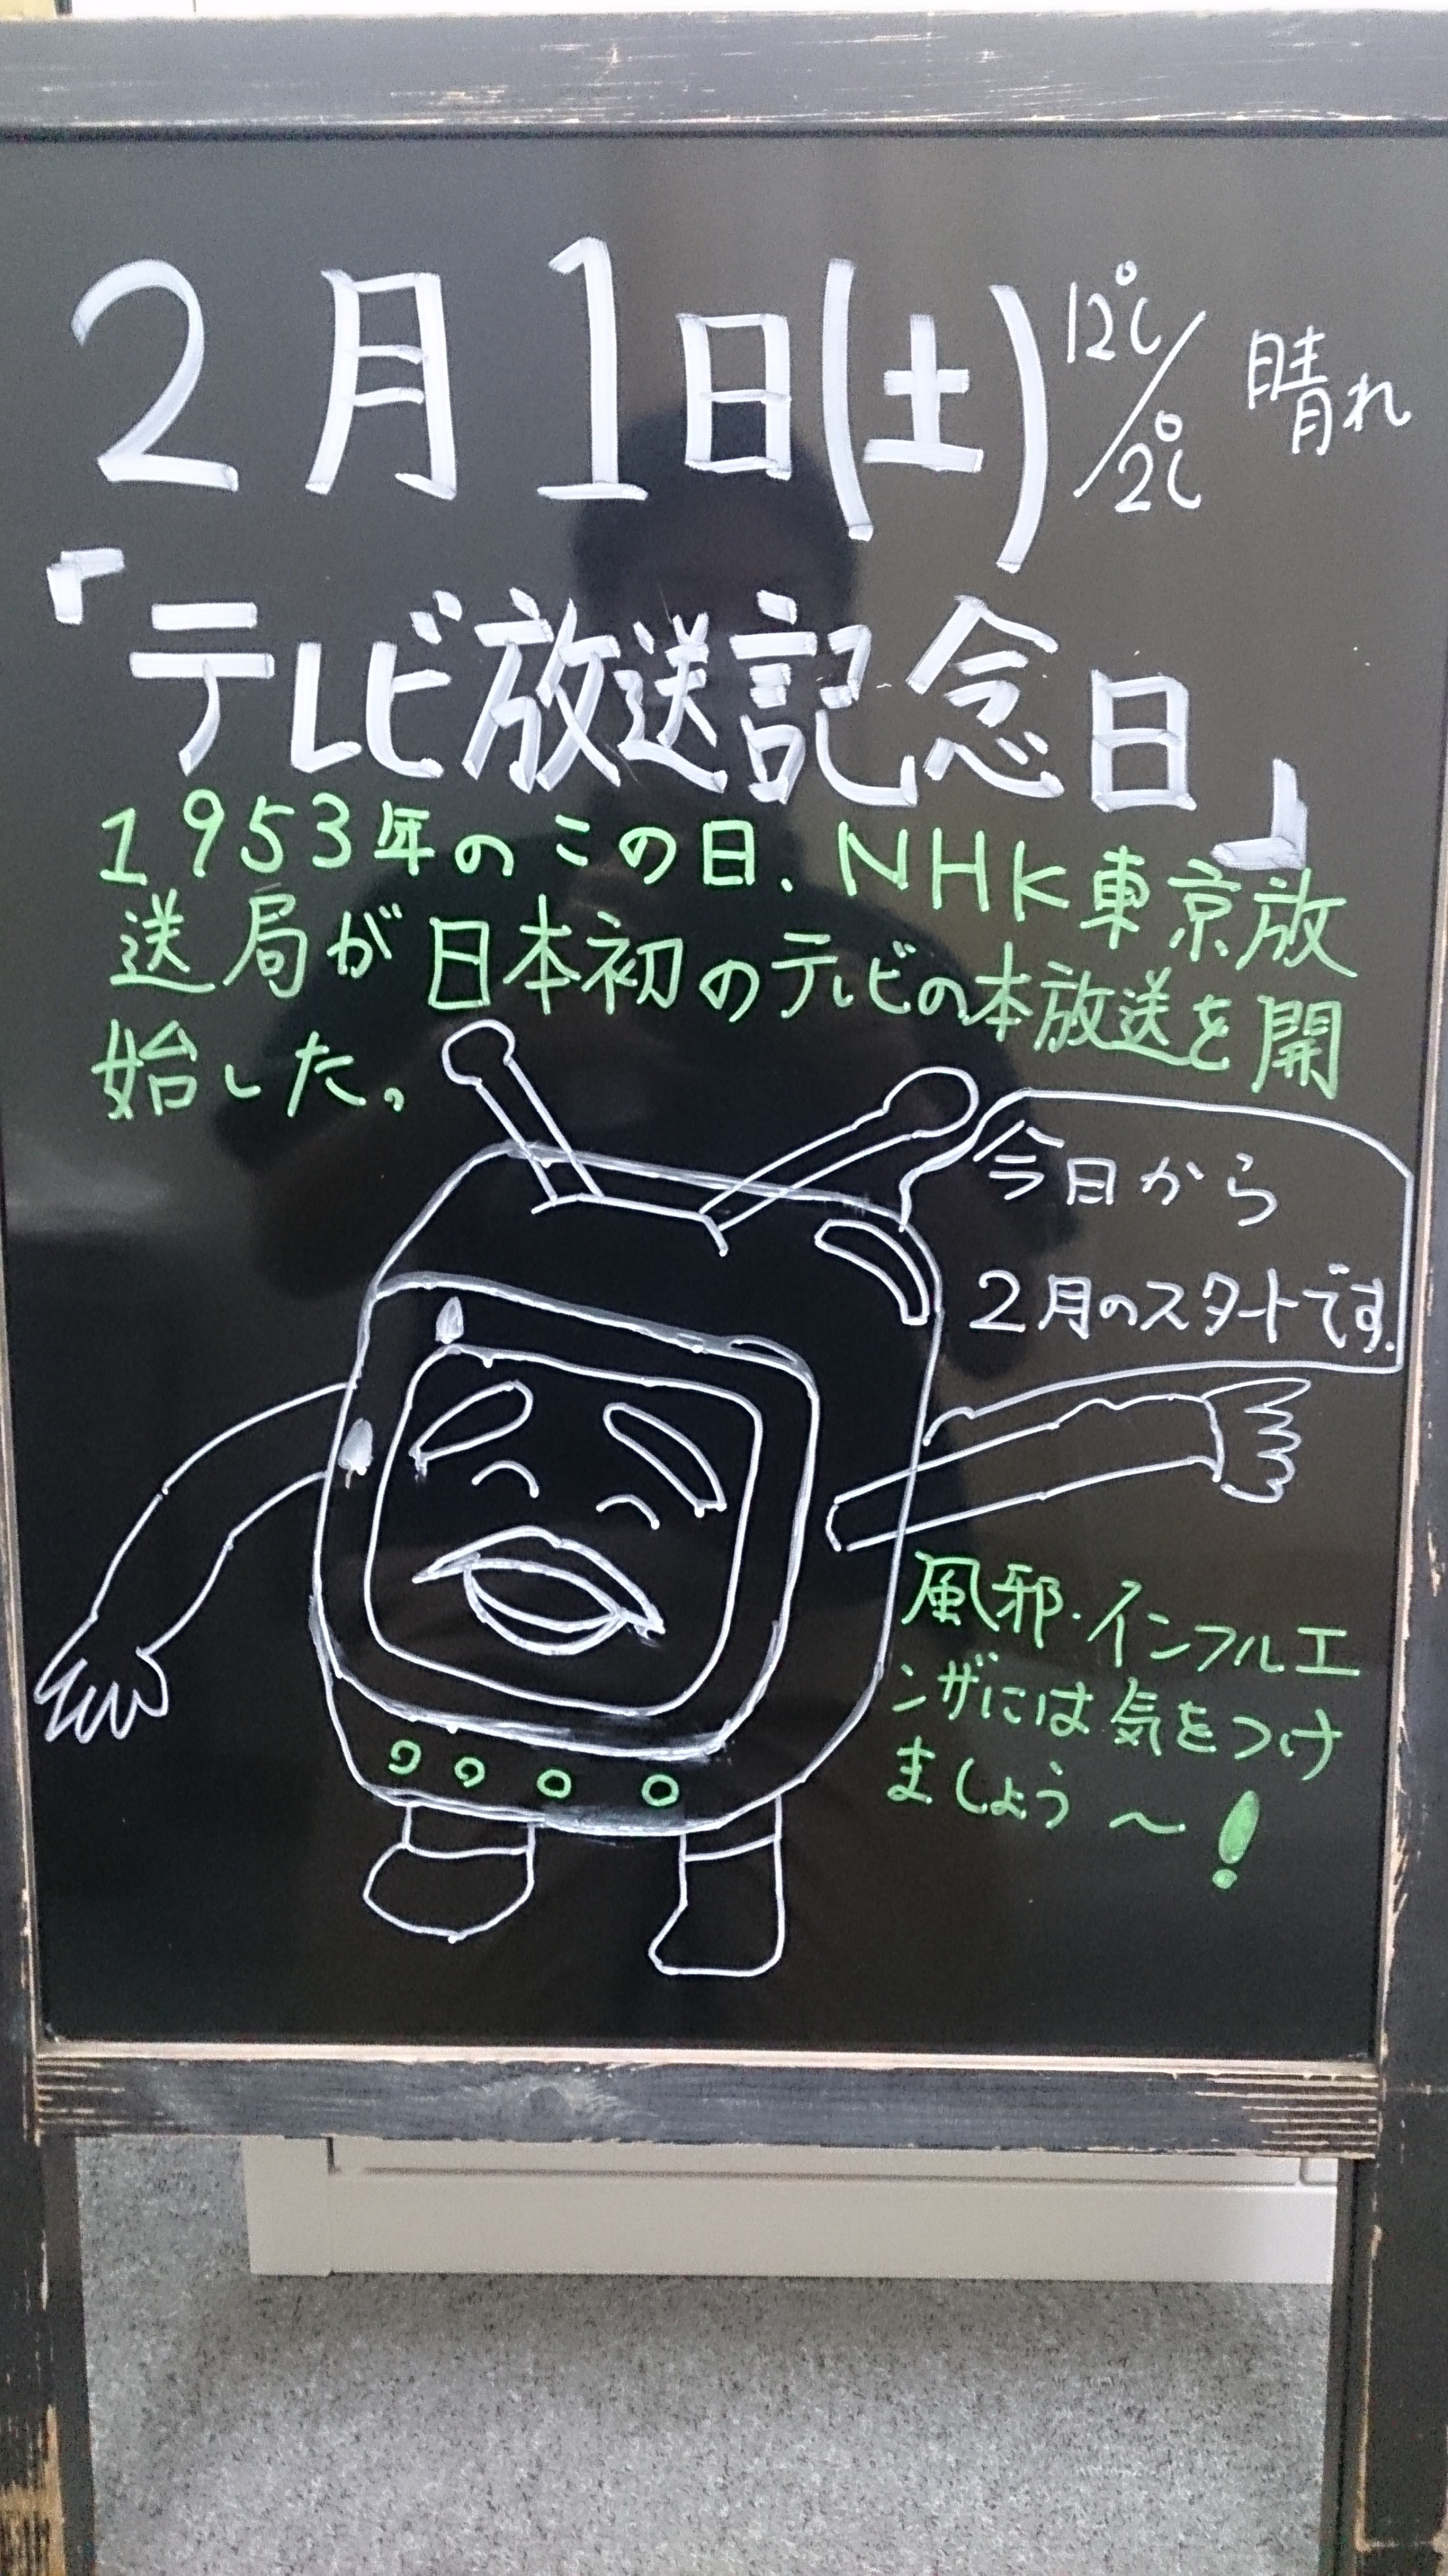 2月1日(土) 12℃/2℃ 晴れ
「テレビ放送記念日」
1953年のこの日、NHK東京放
送局が日本初のテレビの本放送を開
始した。
今日から
2月のスタートです.
風邪・インフルエ
ンザには気をつけ
ましょう〜!